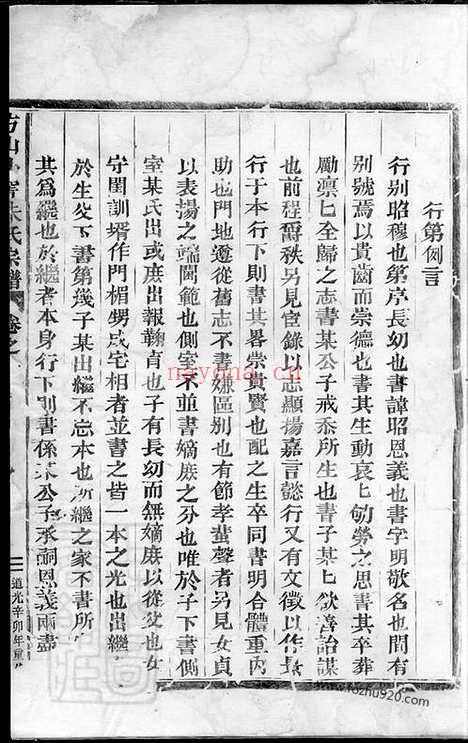 行第例言
行別昭穆也第序長幼也書諱昭恩義也書字明敬名也間有
別號焉以貴齒而崇德也書其生動哀匕劬勞之思書其卒葬
勵凛匕全歸之志書某公子戒忝所生也書子某匕欲善詒謀
也前程爵秩另見宦錄以志顯揚嘉言懿行又有文徵以作長
行于本行下則書其畧崇貴賢也配之生卒同書明合體重内
助也門地遷從舊志不書嫌區别也有節孝蜚聲者另見女貞
以表揚之端閫範也側室不並書嫡庻之分也唯於子下書
室某氏出或庻出報鞠育也子有長幼而無嫡庻以從父也女
守閨訓壻作門楣甥成宅相者並書之皆一本之光也出繼者
於生父下書第幾子某出繼不忘本也所繼之家不書所
其爲繼也於繼者本身行下則書係某公子承嗣恩義兩盡
朱氏宗譜 卷之
道光辛卯年重
nayona.cn
www.fozhu920.com